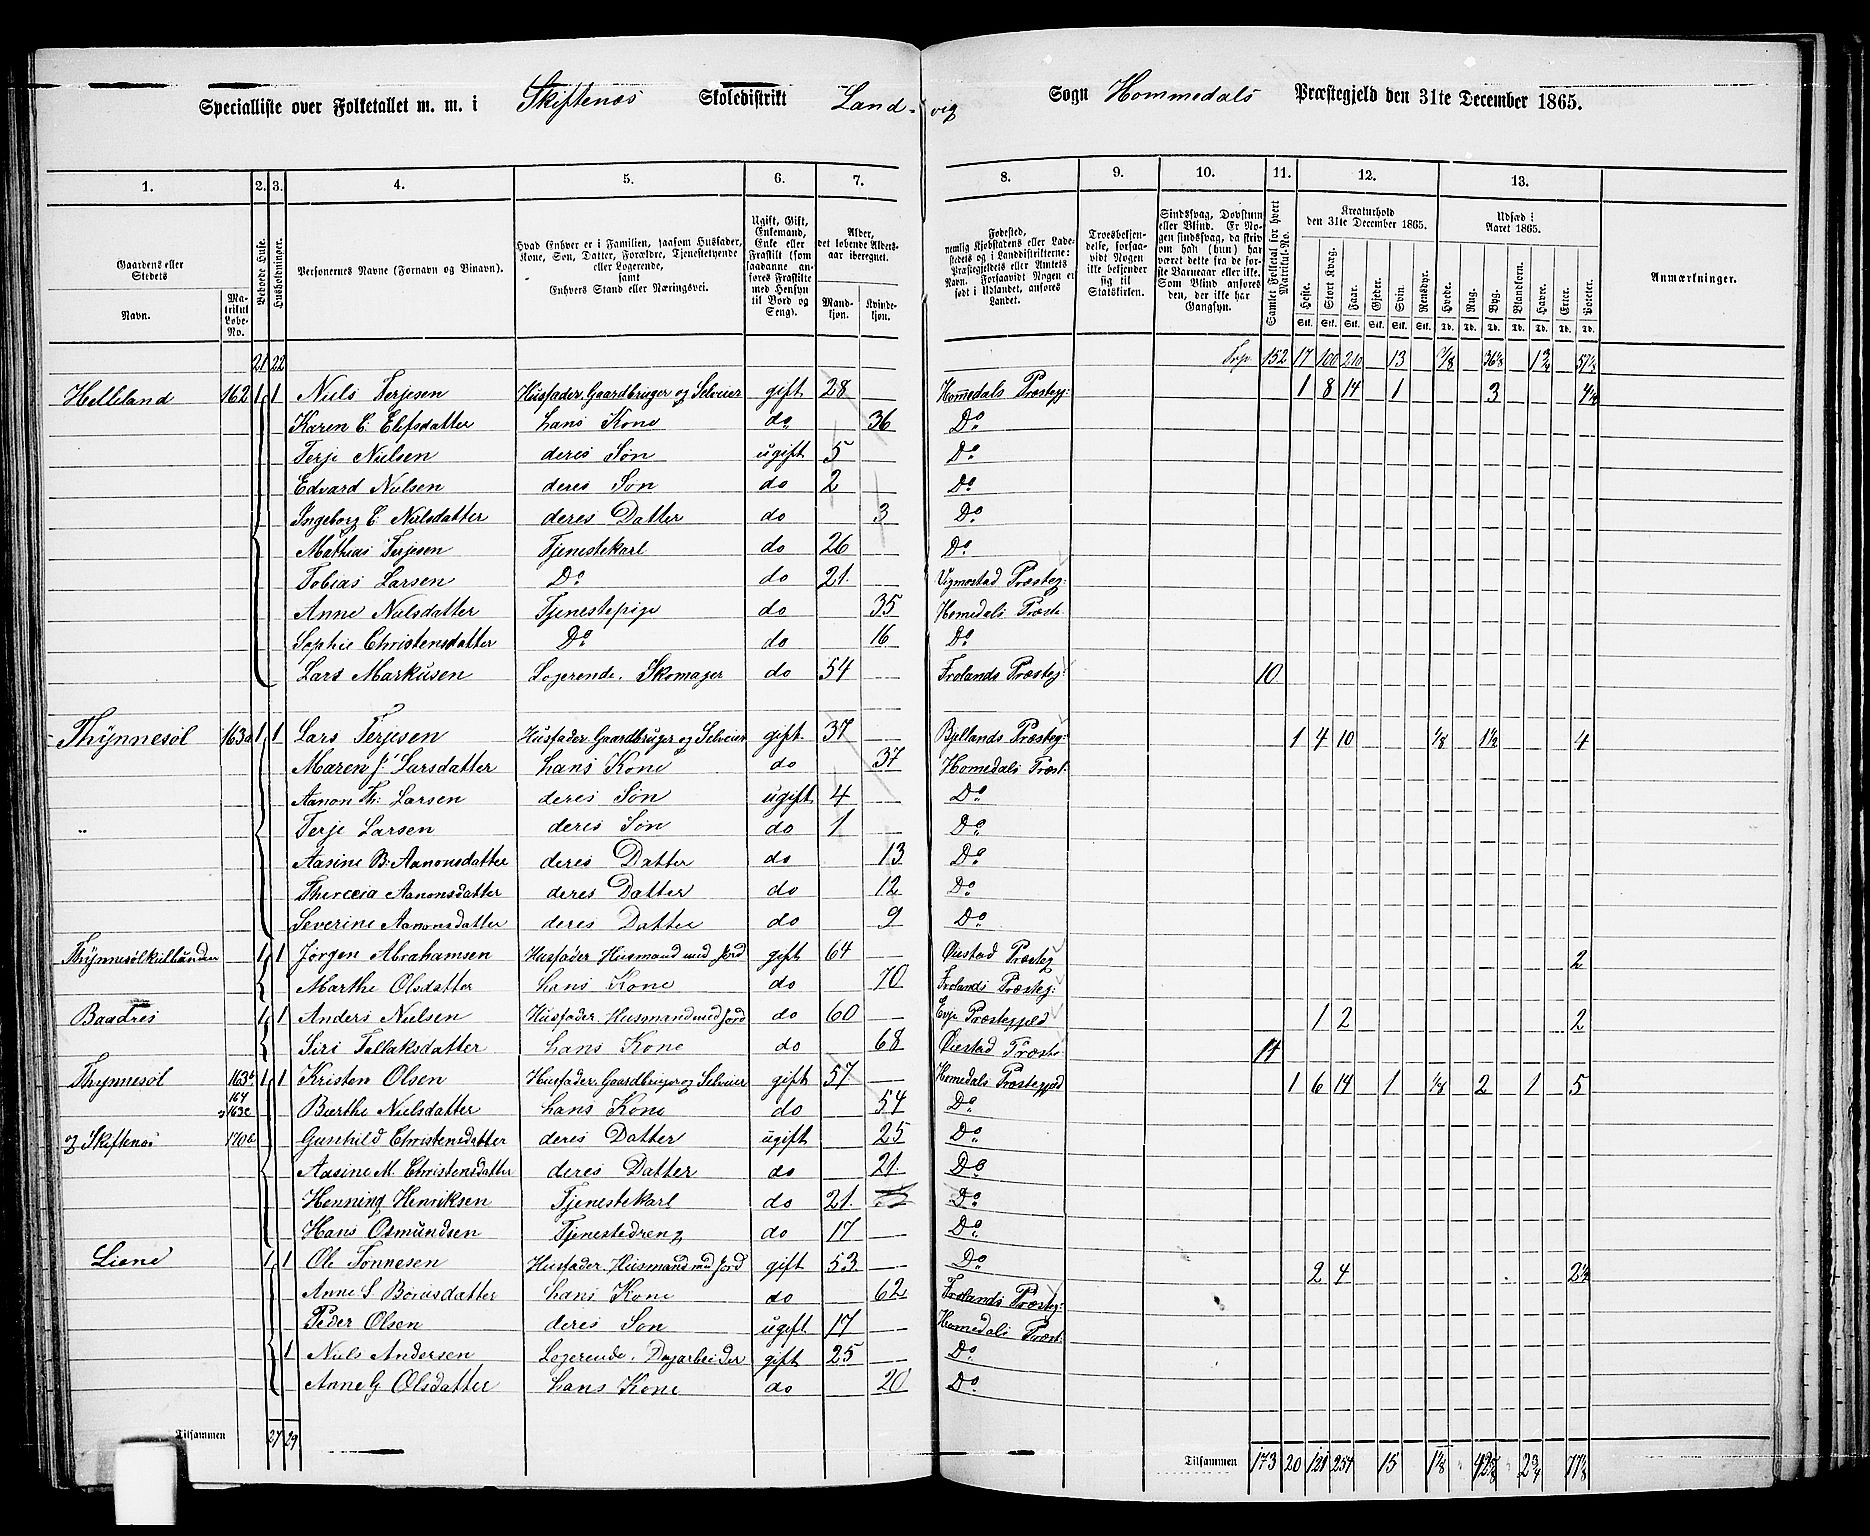 Specialliste over Folketallet m. m. i Skiftenæs Skoledistrikt Landvig Sogn Hommedals Præstegjeld den 31te December 1865.
1. 2. 3. 4. 5. 6. 7. 8. 9. 10. 11. 12. 13.
Gaardens eller Stedets
Navn.
Matrikul Løbe-No.
Beboede Huse.
Husholdninger.
Personernes Navne (Fornavn og Binavn).
Hvad Enhver er i Familien, saasom Husfader, Kone, Søn, Datter, Forældre, Tjenestetyende eller Logerende, samt Enhvers Stand eller Næringsvei.
Ugift, Gift, Enkemand, Enke eller Fraskilt (som saadanne anføres Fraskilte med Hensyn til Bord og Seng).
Alder, det løbende Alders-aar iberegnet.
Mandkjøn. Kvindekjøn.
Fødested, nemlig Kjøbstadens eller Ladestedets og i Landdistrikterne: Præstegjeldets eller Amtets Navn. Forsaavidt Nogen er født i Udlandet, anføres Landet.
Troesbekjendelse, forsaavidt Nogen ikke bekjender sig til Statskirken.
Sindssvag, Døvstum eller Blind. Er Nogen sindssvag, da skriv om han (hun) har været dette fra de første Barneaar eller ikke. Som Blind anføres den, der ikke har Gangsyn.
Samlet Folketal for hvert Matrikul-No.
Kreaturhold den 31te December 1865.
Heste. Stort Kvæg. Faar. Gjeder. Svin. Rensdyr.
Udsæd i Aaret 1865.
Hvede. Rug. Byg. Blandkorn. Havre. Erter. Poteter.
Anmærkninger.
21 22 Trp. 152 17 100 210 13
Helleland 162 1 1 Niels Terjesen Husfader, Gaardbruger og Selveier gift 28 Homedals Præsteg: 1 8 14 1 3 4½
Karen E. Elefsdatter hans Kone do 36 Do
Terje Nielsen deres Søn ugift 5 Do
Edvard Nielsen deres Søn do 2 Do
Ingeborg E. Nielsdatter deres Datter do 3 Do
Mathias Terjesen Tjenestekarl do 26 Do
Tobias Larsen Do do 21. Vigmostad Præsteg:
Anne Nielsdatter Tjenestepige do 35 Homedals Præste.
Sophie Christensdatter Do do 16 Do
Lars Markusen Logerende. Skomager do 54 Frolands Præsteg: 10
Thynnesøl 163a 1 1 Lars Terjesen Husfader, Gaardbruger og Selveier gift. 37 Bjellands Præsteg: 1 4 10 ⅛ 1½ 4
Maren J. Larsdatter hans Kone do 37 Homedals Præst:
Aanon Th: Larsen deres Søn ugift 4 Do
" Terje Larsen deres Søn do 1 Do
Aasine B. Aanonsdatter deres Datter do 13 Do
Therecia Aanonsdatter deres Datter do 12 Do
Severine Aanonsdatter deres Datter do 9 Do
1 1 Jørgen Abrahamsen Husfader Husmand med Jord gift 64 Øiestad Præsteg 2
Marthe Olsdatter hans Kone do 70 Frolands Præsteg:
Baadnes 1 1 Anders Nielsen Husfader. Husmand med Jord do 60 Evje Præstegjeld 1 2 2
Siri Tellaksdatter hans Kone do 68 Øiestad Præste: 11
Thynnesøl 163b 1 1 Kristen Olsen Husfader, Gaardbruger og Selveier gift 57 Homedals Præstegjed 1 6 14 1 ⅛ 2 1 5
164
163c Børthe Nielsdatter hans Kone do 54 Do
og Skiftenæs 170c Gunhild Christensdatter deres Datter ugift 25 Do
Aasine M. Christensdatter deres Datter do 21. Do
Henning Henriksen Tjenestekarl do 21. Do
Hans Osmundsen Tjenestedreng do 17 Do
Liene 1 1 Ole Tønnesen Husfader. Husmand med Jord gift 53 Do 2 4 2½
Anne S. hans Kone do 62 Frolands Præsteg:
Peder Olsen deres Søn ugift 17 Homedals Præst:
1 Niels Andersen Logerende. Dagarbeider gift 25 Do
Anne G Olsdatter hans Kone do 20 Do
Tilsammen 27 29 Tilsammen 173 20 121 254 15 1⅛ 2¾ 77⅛